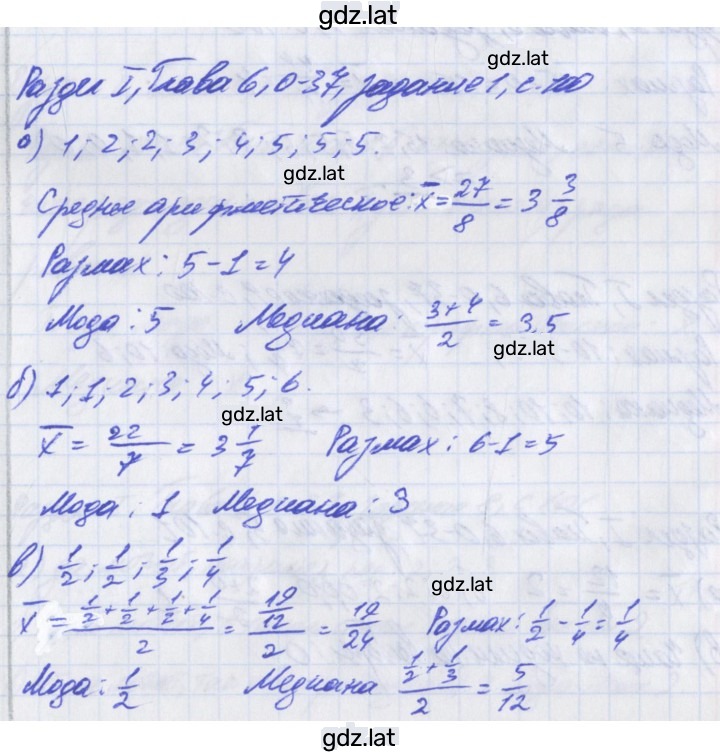 gdz.lat
Раздел I, Глава 6, О-37, задание 1, с. 100
gdz.lat
а) 1; 2; 2; 3; 4; 5; 5; 5.
gdz.lat
Среднее арифметическое: x̅ = 27/8 = 3 3/8
Размах: 5 - 1 = 4
Мода: 5 Медиана: (3+4)/2 = 3,5
gdz.lat
б) 1; 1; 2; 3; 4; 5; 6.
gdz.lat
x̅ = 22/7 = 3 1/7 Размах: 6-1=5
Мода: 1 Медиана: 3
в) 1/2; 1/2; 1/3; 1/4
gdz.lat
x̅ = (1/2 + 1/2 + 1/2 + 1/4)/2 = (19/12)/2 = 19/24 Размах: 1/2 - 1/4 = 1/4
Мода: 1/2 Медиана (1/2 + 1/3)/2 = 5/12
gdz.lat